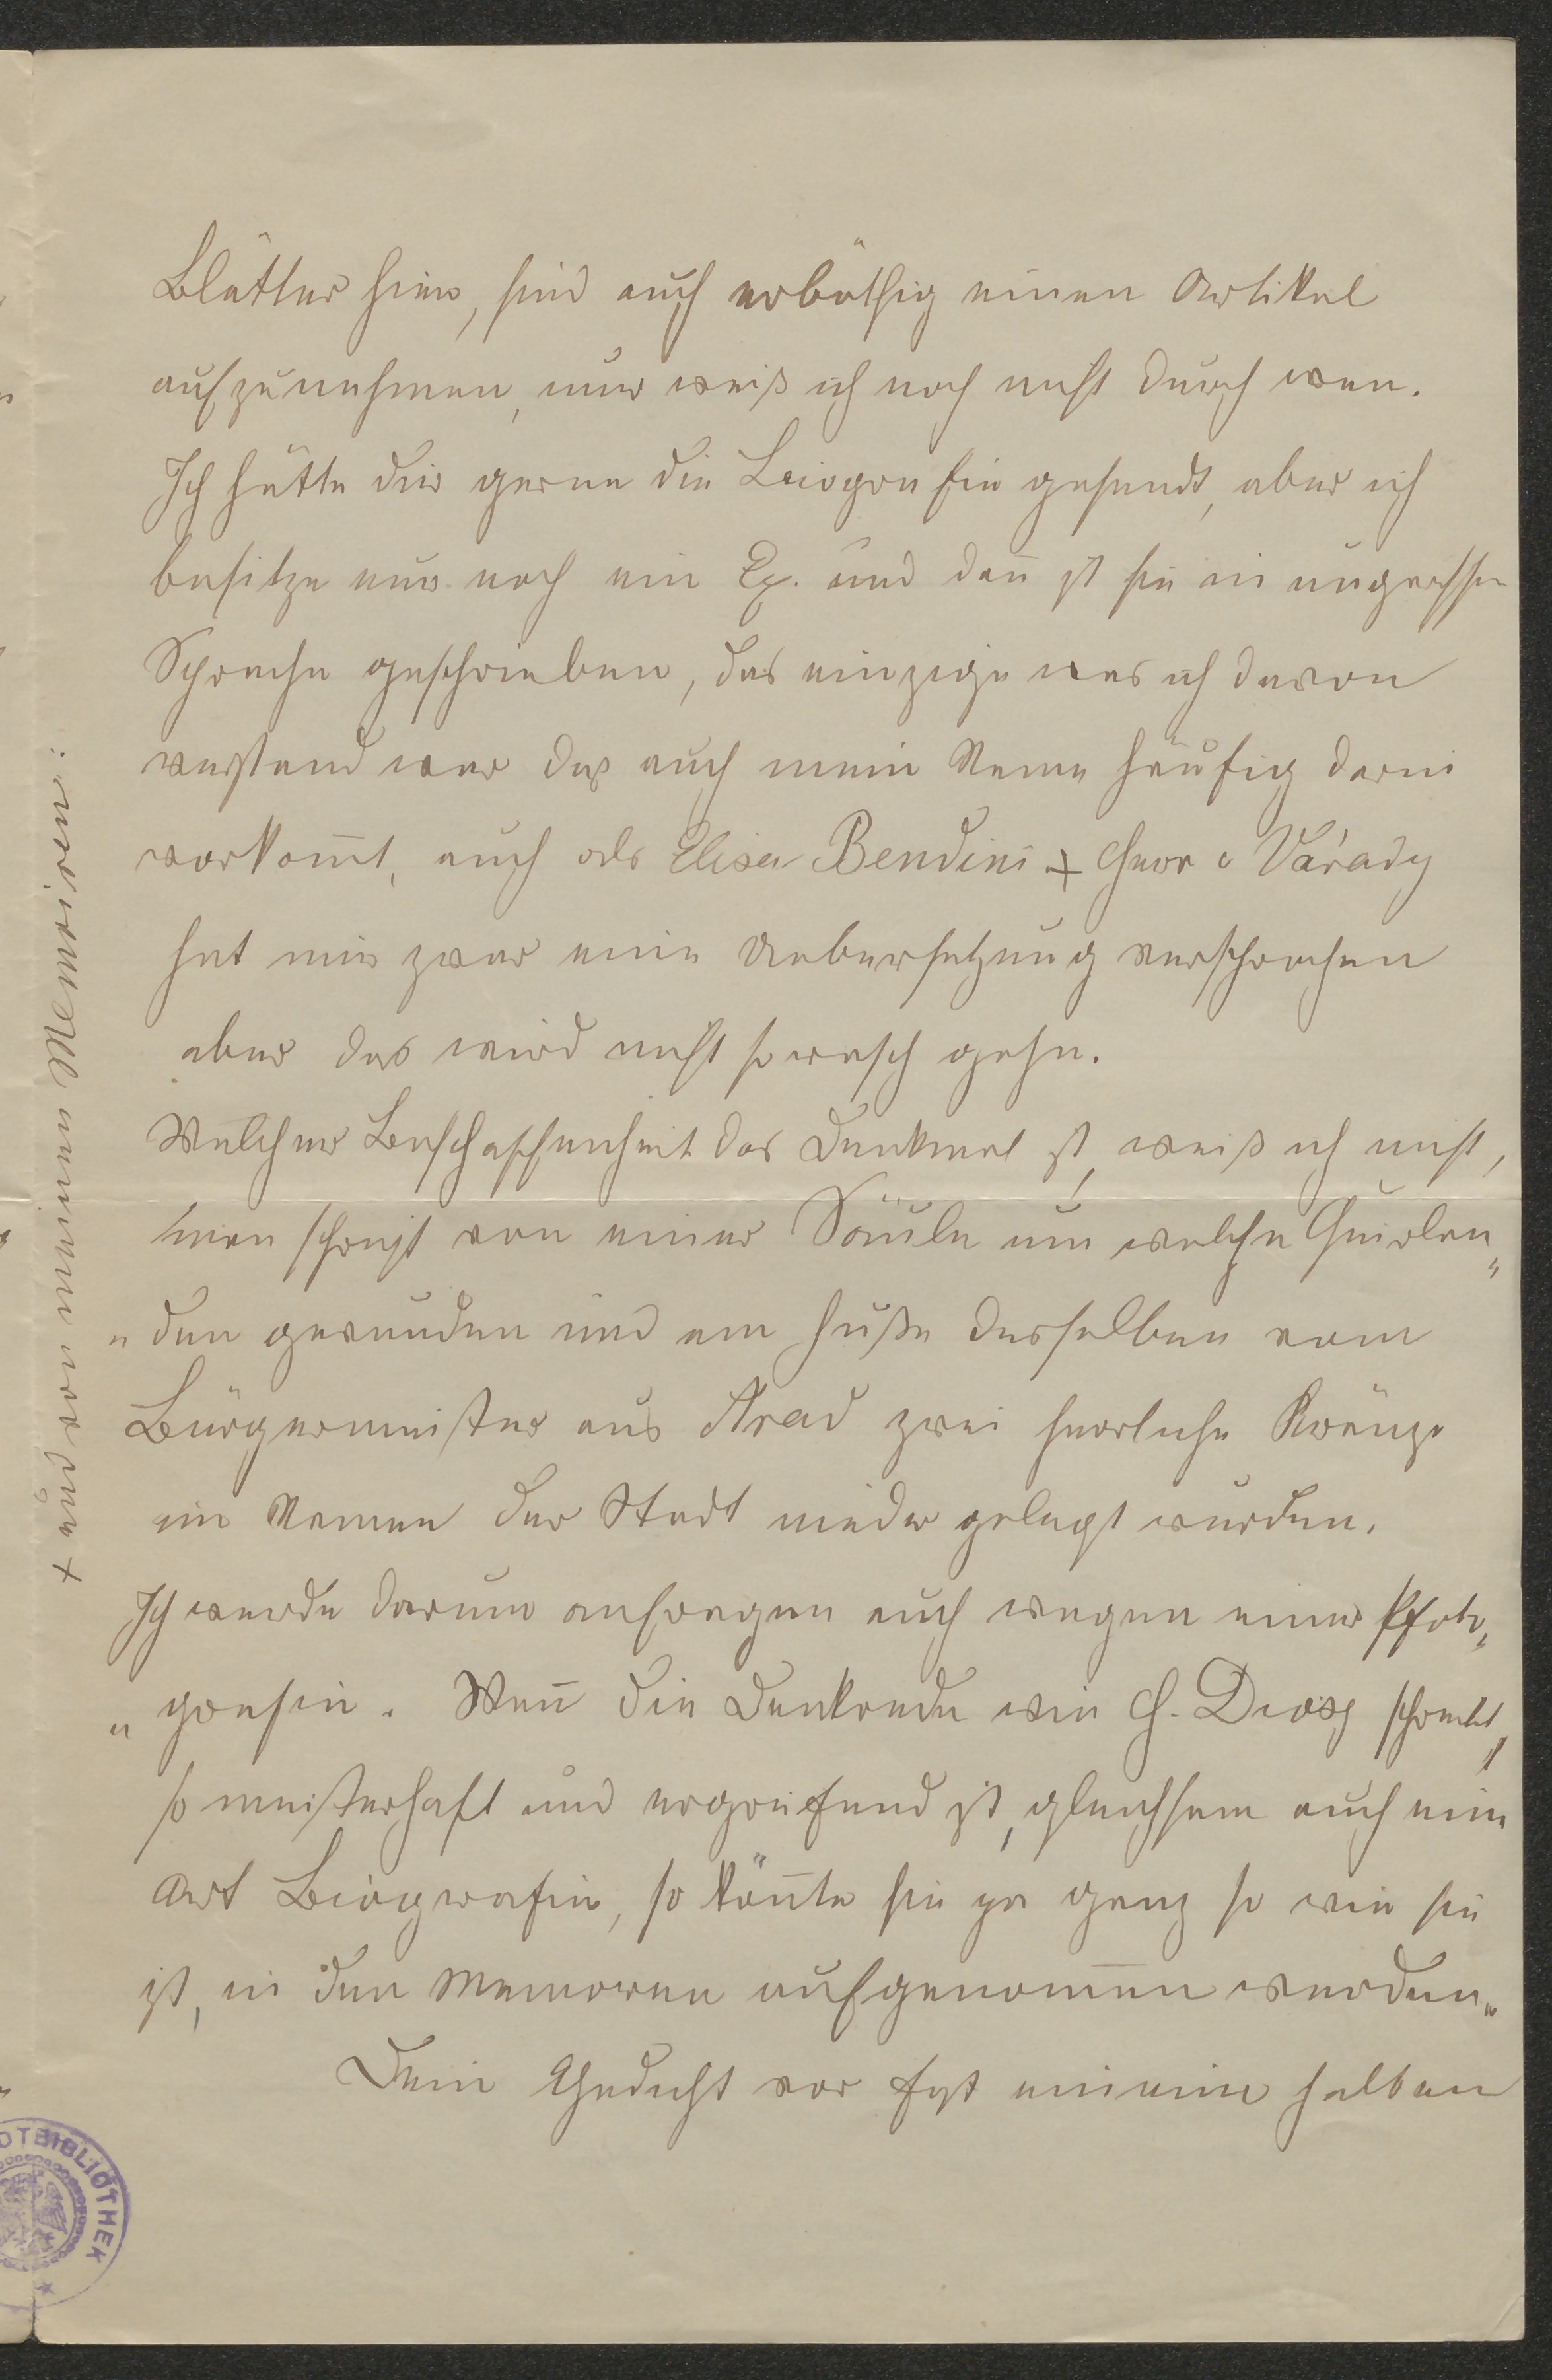 Blätter hier, sind auch erböthig einen Artikel
aufzunehmen, nur weiß ich noch nicht durch wen.
Ich hätte dir gerne die Biografie gesandt, aber ich
besitze nur noch ein Ex. und dan̄ ist sie in ungarischer
Sprache geschrieben, das einzige was ich davon
verstand war daß auch mein Name häufig darin
vorkom̄t, auch als Elisa Bendini + Herr v Várady
hat mir zwar eine Uebersetzung versprochen
aber das wird nicht so rasch gehn.
Welcher Beschaffenheit das Denkmal ist, weiß ich nicht,
man schreibt von einer Säule um welche Guirlan„
„den gewunden und am Fuße desselben vom
Bürgermeister aus Arad zwei herrliche Kränze
im Namen der Stadt nieder gelegt wurden.
Ich werde darum anfragen auch wegen einer Photo„
„grafie. Wen̄ die Denkrede wie H. Diosy schreibt,
so meisterhaft und ergreifend ist, gleichsam auch eine
Art Biografie, so kön̄te sie ja ganz so wie sie
ist, in den Memoiren aufgenom̄en werden„
Dein Gedicht vor fast einem halben
+ und von meinen Memoiren:
BIBLIOTHEK